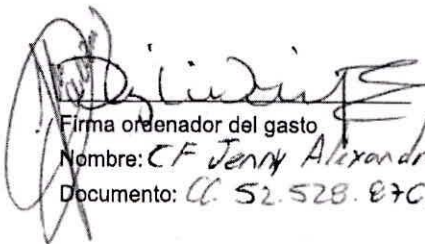 Firma ordenador del gasto
Nombre: CF Jenny Alexandr
Documento: CC. 52.528.870